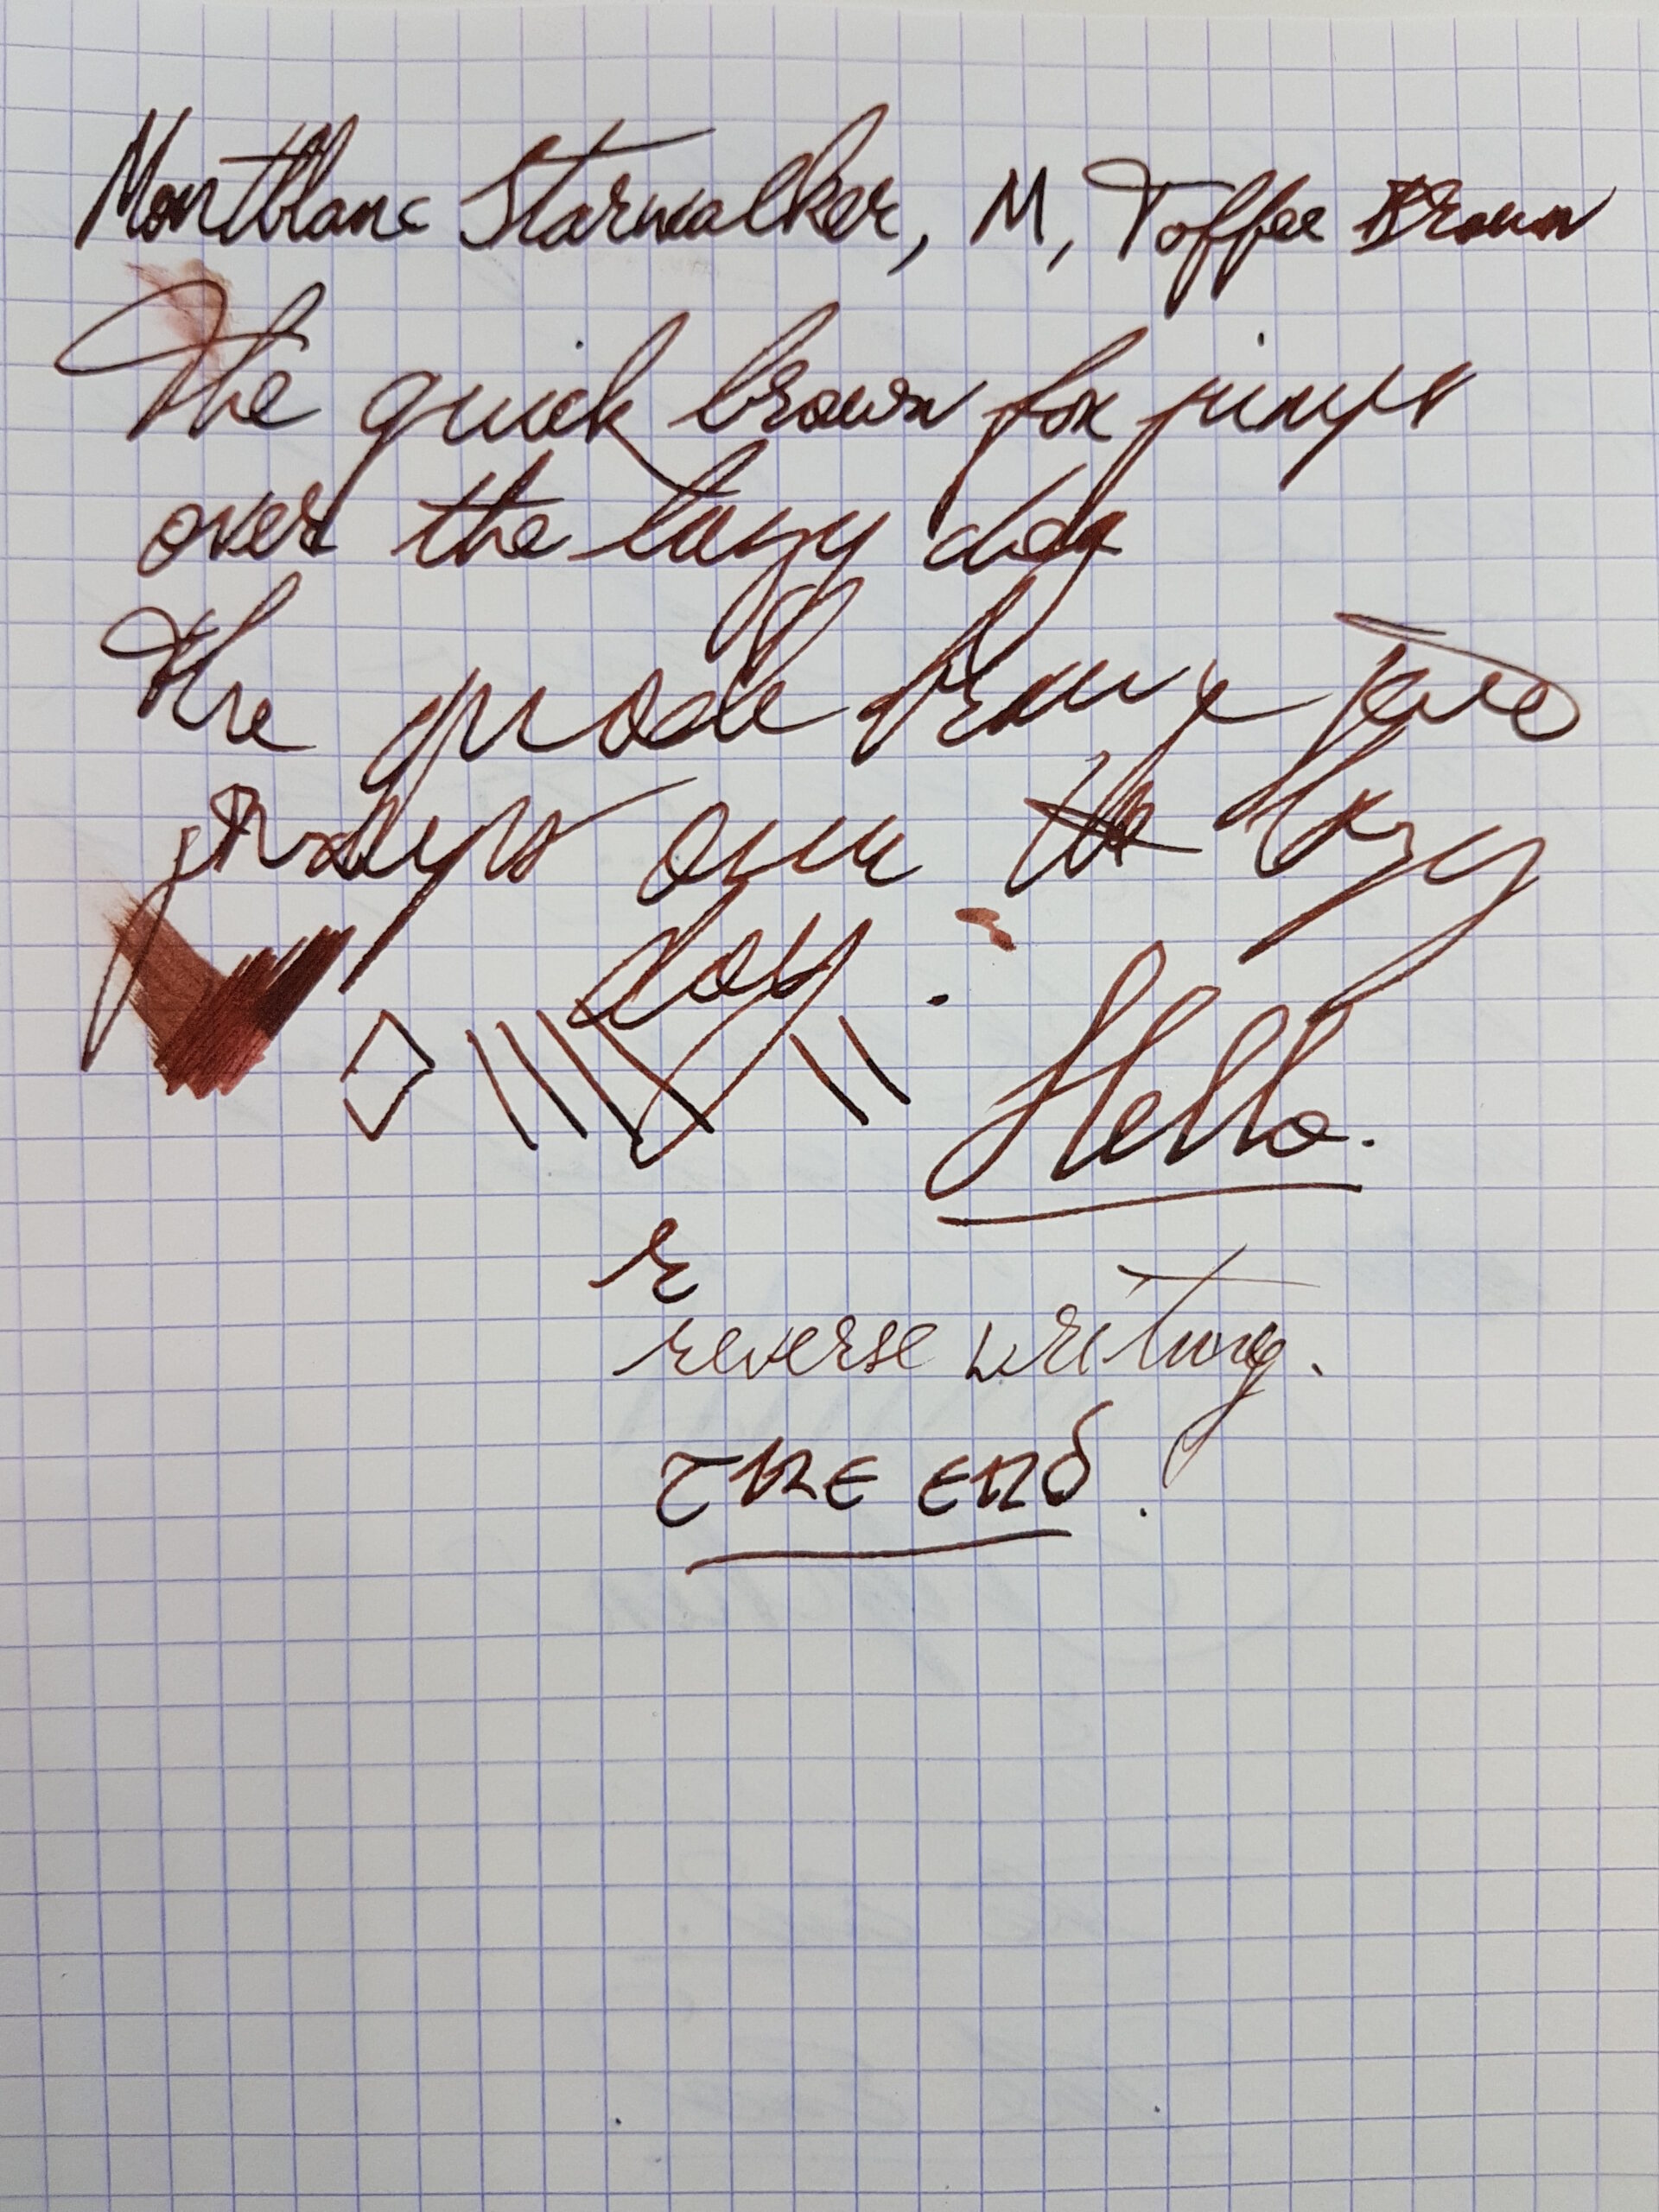 Montblanc Starwalker, M, Toffee Brown
The quick brown fox jumps
over the lazy dog
The quick brown fox
jumps over the lazy
dog.
Hello.
r
reverse writing.
THE END.